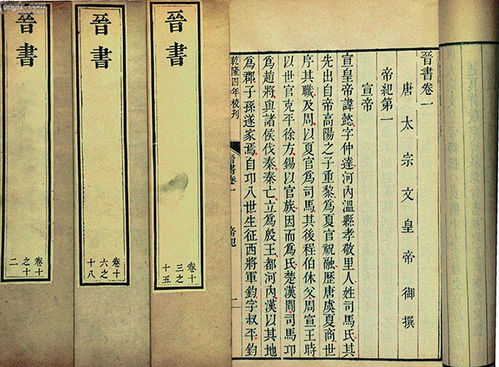 晉書卷一
唐太宗文皇帝御撰
帝紀第一
宣帝
宣皇帝諱懿字仲達河內溫縣孝敬里人姓司馬氏其
先出自帝高陽之子重黎爲夏官祝融歷唐虞夏商世
序其職及周以夏官爲司馬其後程伯休父周宣王時
以世官克平徐方錫以官族因而爲氏楚漢間司馬卬
爲趙將與諸侯伐秦秦亡立爲殷王都河內漢以其地
爲郡子孫遂家焉自卬八世生征西將軍鈞字叔平
乾隆四年校刊
晉書卷一
帝紀
一
晉書
卷十
三之
十五
晉書
卷十
六之
十八
晉書
卷十
之十
二